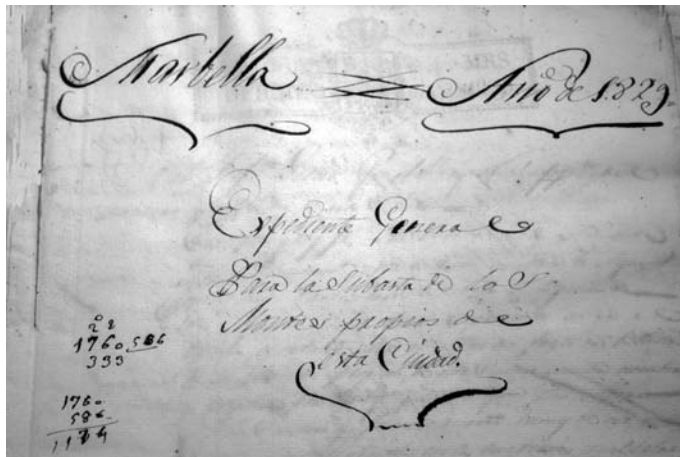 Marbella = Año de 1.829.
Expediente General
Para la Subasta de los
Montes propios de
esta Ciudad.
1760 586
333
1760
586
1174